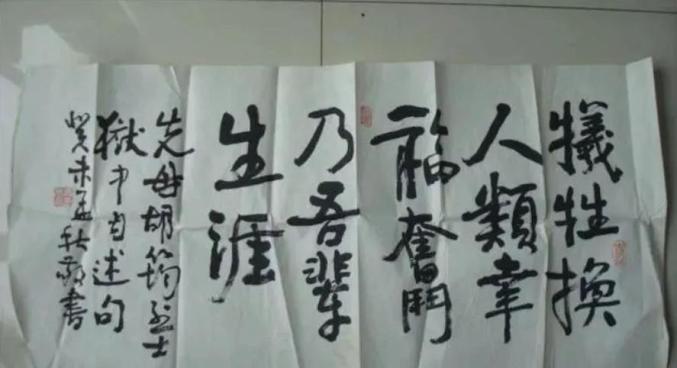 犧牲換
人類幸
福奮鬥
乃吾輩
生涯
先母胡筠烈士
獄中自述句
癸未孟秋敬書